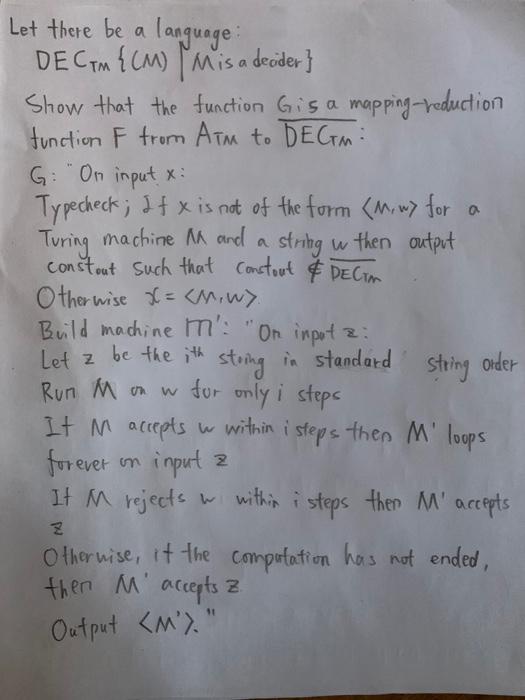 Let there be a language:
DEC_TM {⟨M⟩ | M is a decider}
Show that the function G is a mapping-reduction
function F from A_TM to \overline{DEC_TM}:
G: "On input x:
Typecheck; If x is not of the form <M,w> for a
Turing machine M and a string w then output
constout such that constout ∉ \overline{DEC_TM}
Otherwise x = <M,w>.
Build machine M': "On input z:
Let z be the ith string in standard string order
Run M on w for only i steps
If M accepts w within i steps then M' loops
forever on input z
If M rejects w within i steps then M' accepts
z
Otherwise, if the computation has not ended,
then M' accepts z
Output <M'>."